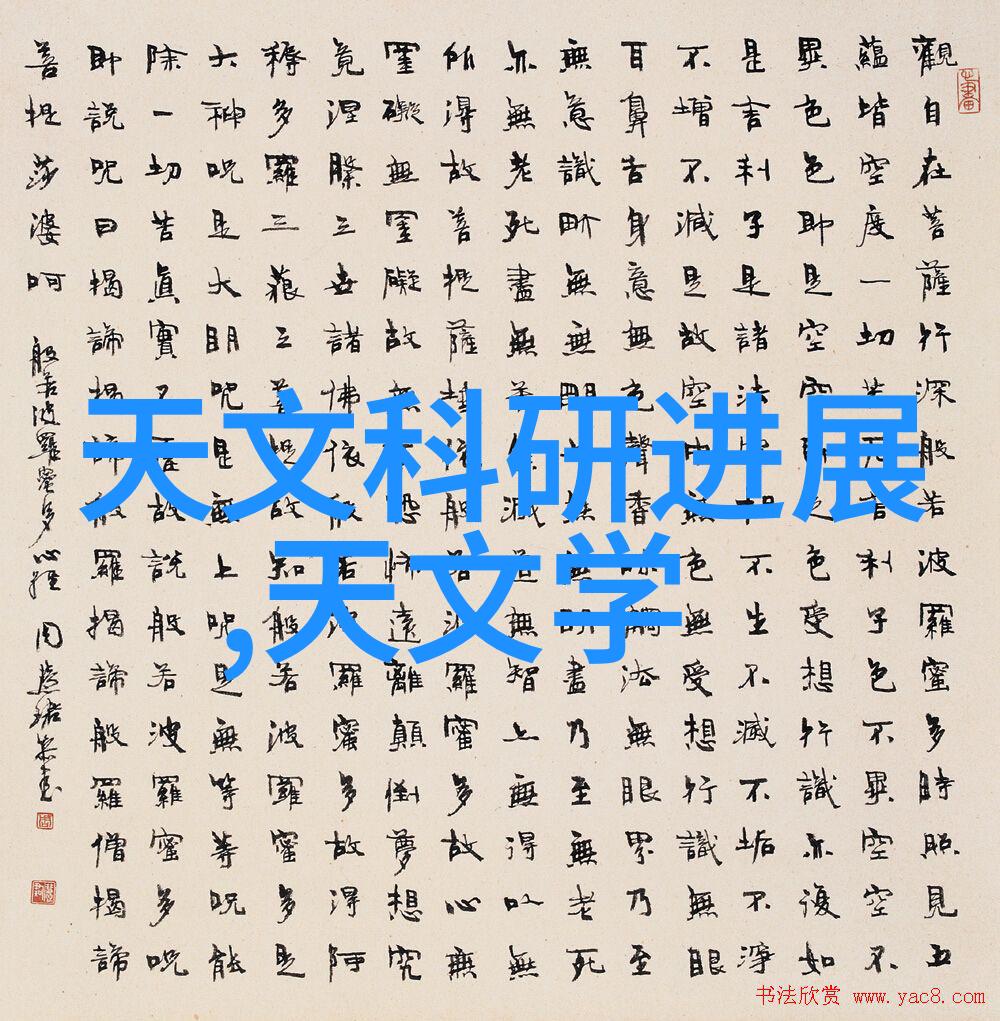 觀自在菩薩行深般若波羅蜜多時照見五
蘊皆空度一切苦厄舍利子色不異空空不
異色色即是空空即是色受想行識亦復如
是舍利子是諸法空相不生不滅不垢不淨
不增不減是故空中無色無受想行識無眼
耳鼻舌身意無色聲香味觸法無眼界乃至
無意識界無無明亦無無明盡乃至無老死
亦無老死盡無苦集滅道無智亦無得以無
所得故菩提薩埵依般若波羅蜜多故心無
罣礙無罣礙故無有恐怖遠離顛倒夢想究
竟涅槃三世諸佛依般若波羅蜜多故得阿
耨多羅三藐三菩提故知般若波羅蜜多是
大神呪是大明呪是無上呪是無等等呪能
除一切苦眞實不虛故說般若波羅蜜多呪
即說呪曰揭諦揭諦般羅揭諦般羅僧揭諦
菩提莎婆呵
般若波羅蜜多心經 周慧珺恭書
天文科研进展
,天文学
书法欣赏 www.yac8.com